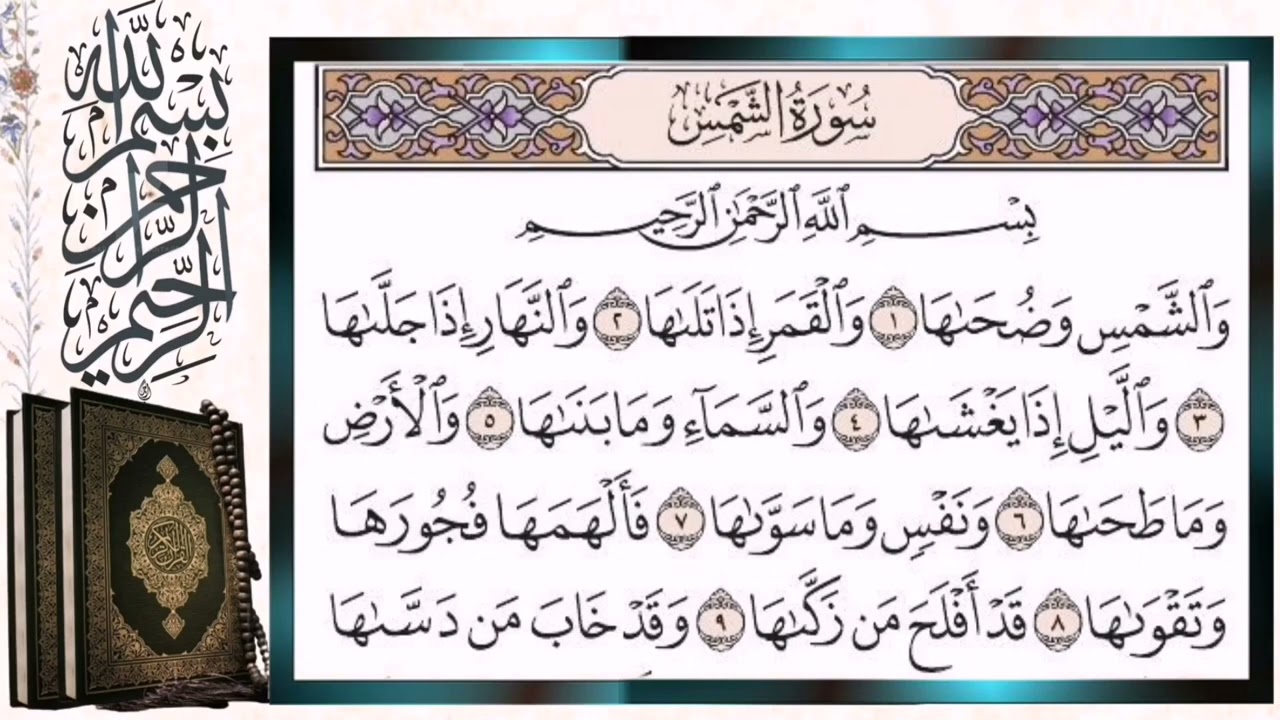 سُورَةُ الشَّمْسِ
بِسْمِ ٱللَّهِ ٱلرَّحْمَٰنِ ٱلرَّحِيمِ
وَٱلشَّمْسِ وَضُحَىٰهَا ١ وَٱلْقَمَرِ إِذَا تَلَىٰهَا ٢ وَٱلنَّهَارِ إِذَا جَلَّىٰهَا
٣ وَٱلَّيْلِ إِذَا يَغْشَىٰهَا ٤ وَٱلسَّمَآءِ وَمَا بَنَىٰهَا ٥ وَٱلْأَرْضِ
وَمَا طَحَىٰهَا ٦ وَنَفْسٍ وَمَا سَوَّىٰهَا ٧ فَأَلْهَمَهَا فُجُورَهَا
وَتَقْوَىٰهَا ٨ قَدْ أَفْلَحَ مَن زَكَّىٰهَا ٩ وَقَدْ خَابَ مَن دَسَّىٰهَا
بسم الله
الرحمن
الرحيم
القرآن الكريم